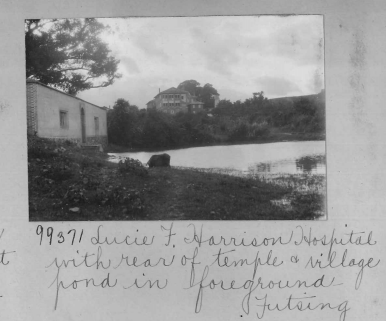 99371 Lucie F. Harrison Hospital
t with rear of temple & village
pond in foreground
Futsing